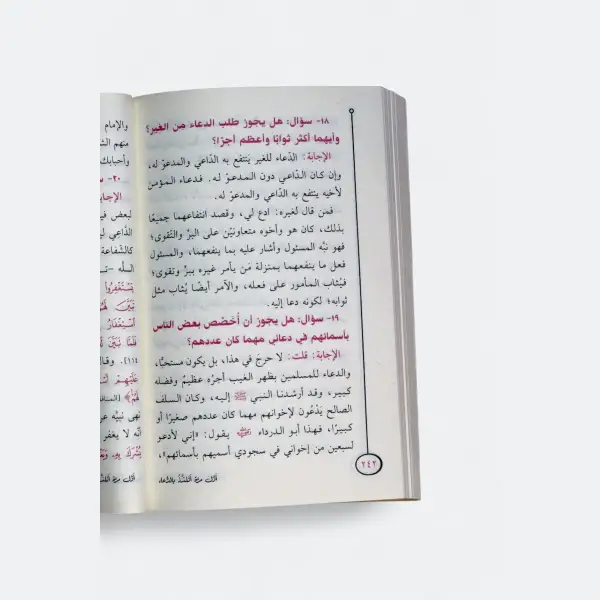 ١٨- سؤال: هل يجوز طلب الدعاء من الغير؟
وأيهما أكثر ثوابًا وأعظم أجرًا؟
الإجابة: الدّعاء للغير ينتفع به الدَّاعي والمدعوّ له،
وإن كان الدّاعي دون المدعوّ له. فدعاء المؤمن
لأخيه ينتفع به الدَّاعي والمدعوّ له.
فمن قال لغيره: ادع لي، وقصد انتفاعهما جميعًا
بذلك، كان هو وأخوه متعاونَيْن على البرّ والتَّقوى؛
فهو نبَّه المسئول وأشار عليه بما ينفعهما، والمسئول
فعل ما ينفعهما بمنزلة مَن يأمر غيره ببرٍّ وتقوى؛
فيُثاب المأمور على فعله، والآمر أيضًا يُثاب مثل
ثوابه؛ لكونه دعا إليه.
١٩- سؤال: هل يجوز أن أُخصّص بعض الناس
بأسمائهم في دعائي مهما كان عددهم؟
الإجابة: قلت: لا حرج في هذا، بل يكون مستحبًّا،
والدعاء للمسلمين بظهر الغيب أجرُه عظيمٌ وفضله
كبير، وقد أرشدنا النبي ﷺ إليه، وكان السلف
الصالح يَدْعُون لإخوانهم مهما كان عددهم صغيرًا أو
كبيرًا، فهذا أبو الدرداء يقول: «إني لأدعو
لسبعين من إخواني في سجودي أسميهم بأسمائهم»،
٢٤٢
والإمام
منهم
وأحبابك
٢٠-
الإجابة
لبعض
الدَّاعي
كالشَّفاعة
الله
يَسْتَغْفِرُوا
تَبَيَّنَ
فَلَمَّا تَبَيَّنَ
١١٤]. وقال
عَلَيْهِمْ
نهى نبيَّه
أنَّه لا يغفر
يُشْرَكَ بِهِ